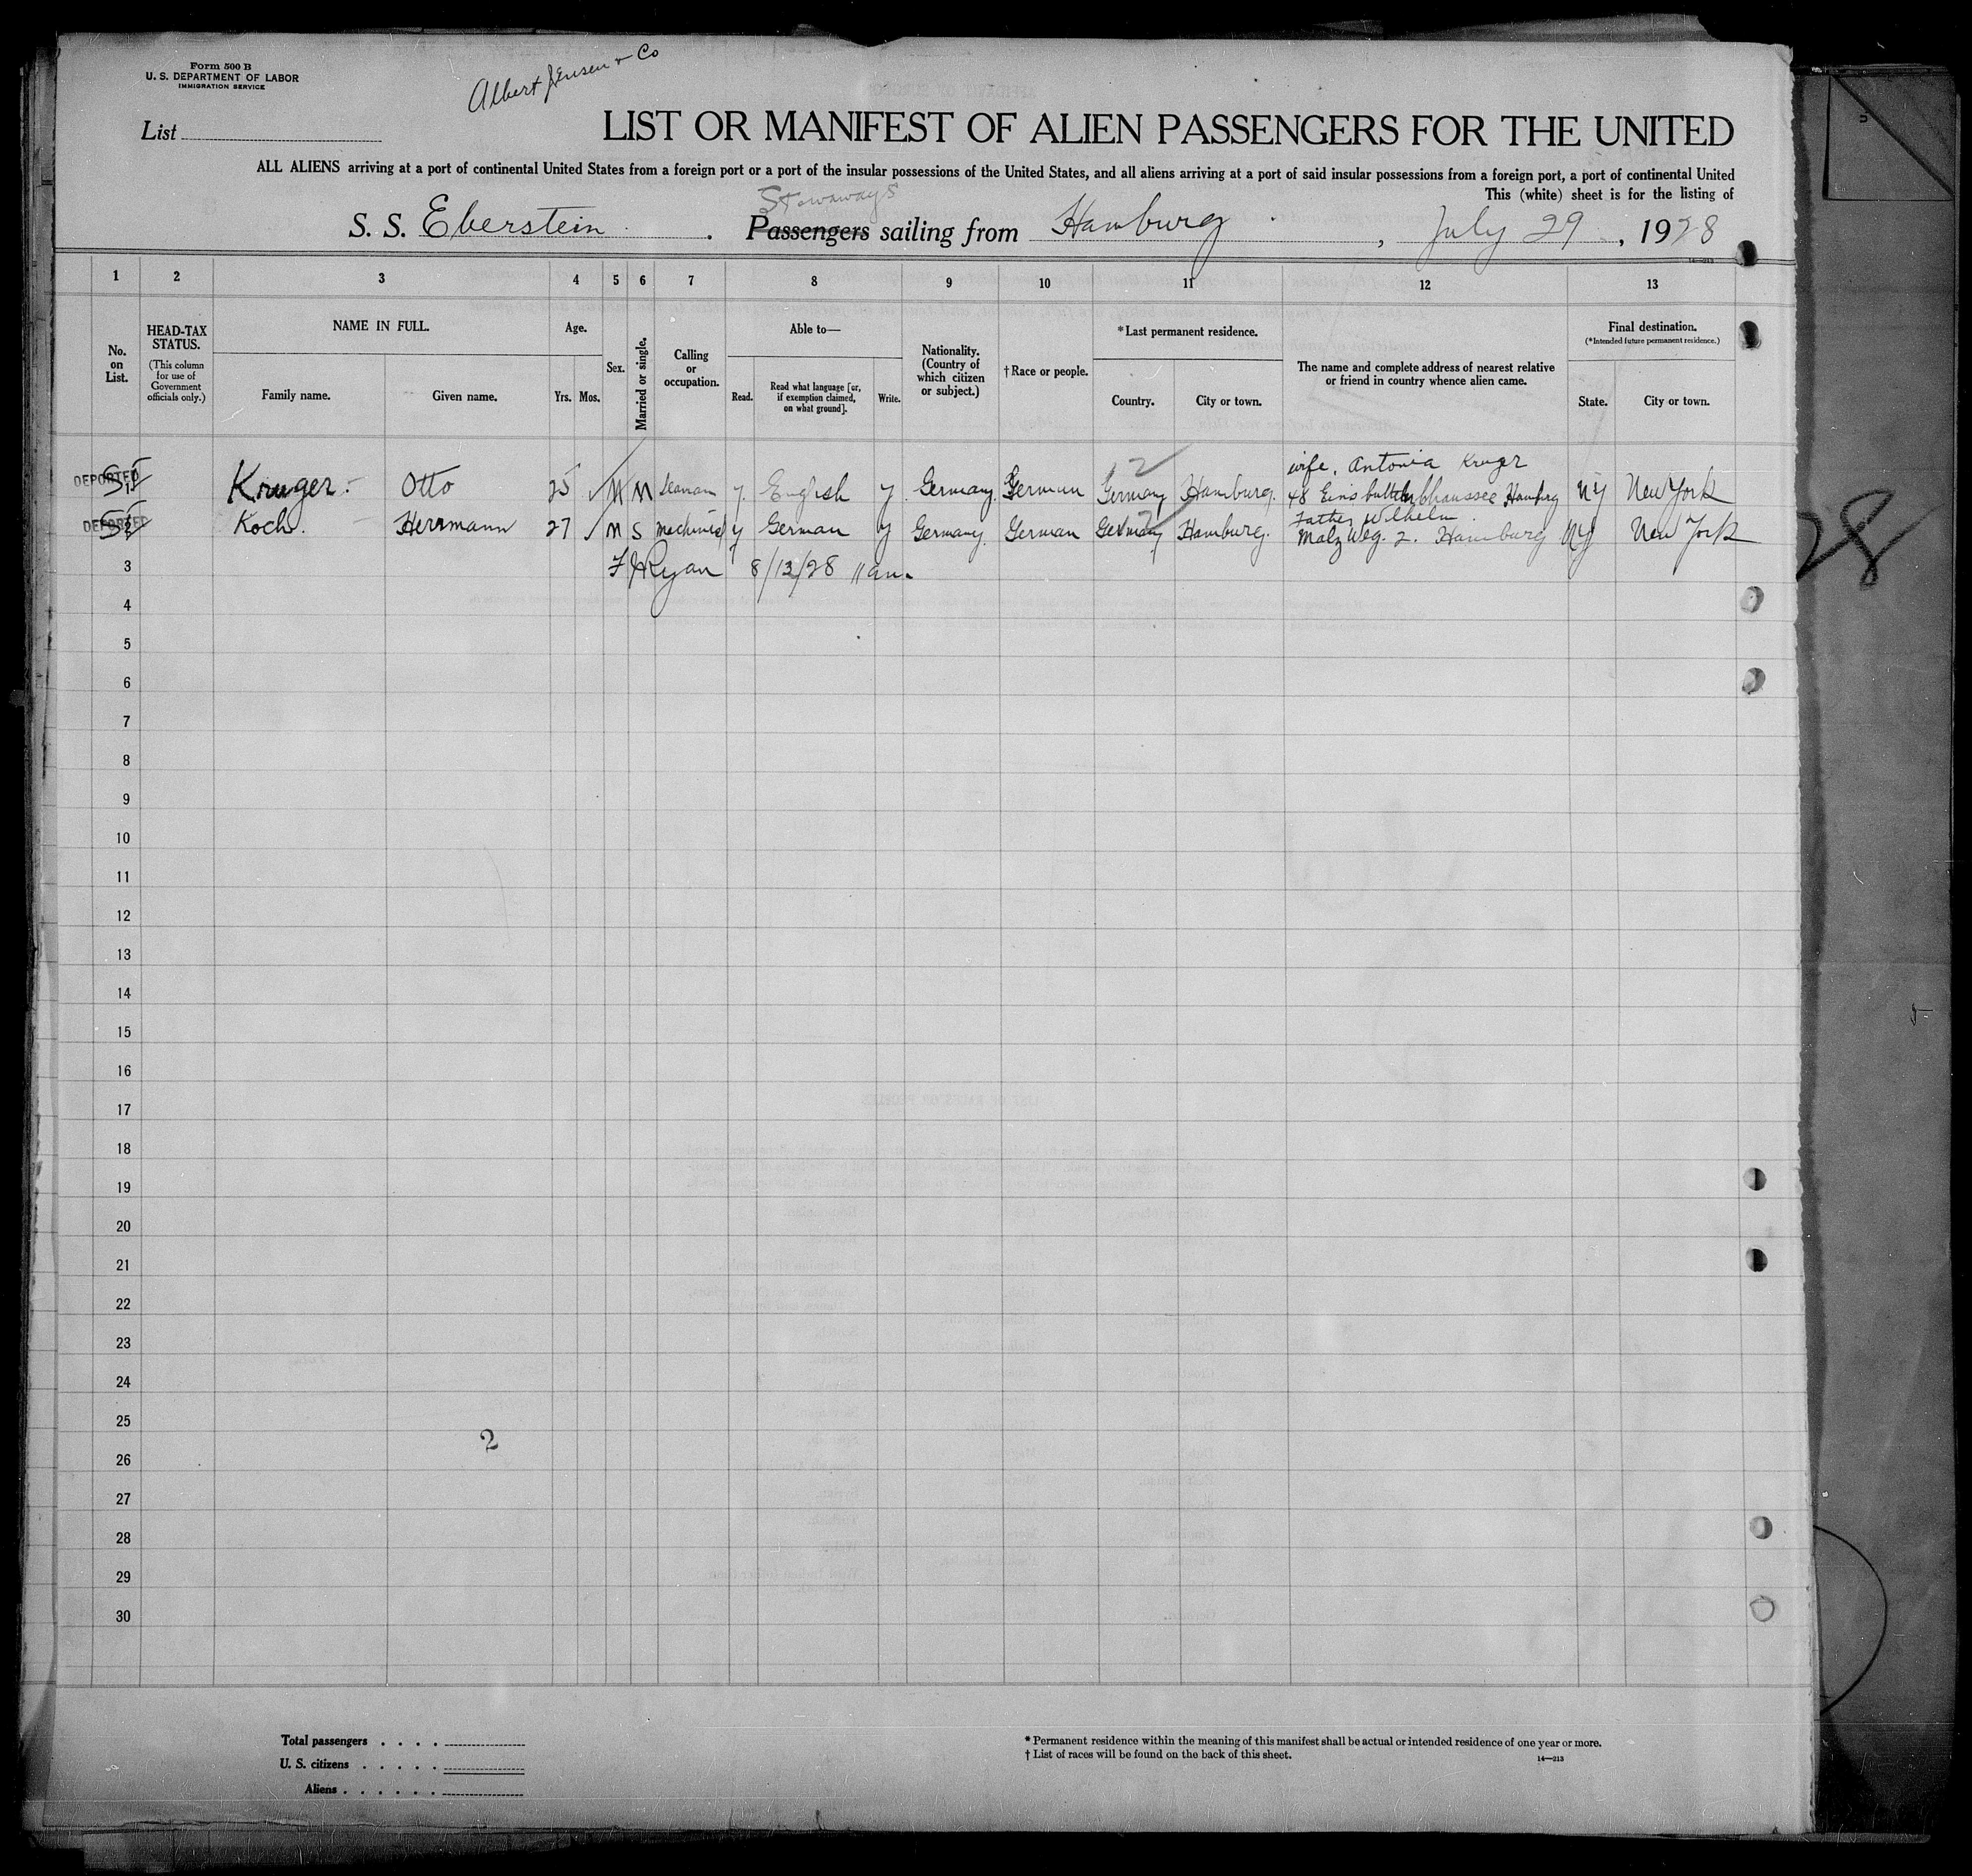 Form 500 B
U. S. DEPARTMENT OF LABOR
IMMIGRATION SERVICE
Albert Jensen & Co
List
LIST OR MANIFEST OF ALIEN PASSENGERS FOR THE UNITED
ALL ALIENS arriving at a port of continental United States from a foreign port or a port of the insular possessions of the United States, and all aliens arriving at a port of said insular possessions from a foreign port, a port of continental United
This (white) sheet is for the listing of
Stowaways
S. S. Eberstein. Passengers sailing from Hamburg, July 29, 1928
14—213
1 2 3 4 5 6 7 8 9 10 11 12 13
No. on List.
HEAD-TAX STATUS.
(This column for use of Government officials only.)
NAME IN FULL.
Family name. Given name.
Age.
Yrs. Mos.
Sex.
Married or single.
Calling or occupation.
Able to—
Read. Read what language [or, if exemption claimed, on what ground]. Write.
Nationality. (Country of which citizen or subject.)
† Race or people.
* Last permanent residence.
Country. City or town.
The name and complete address of nearest relative or friend in country whence alien came.
Final destination.
(*Intended future permanent residence.)
State. City or town.
12
wife, Antonia Kruger
DEPORTED Kruger Otto 25 M M Seaman y English y Germany German Germany Hamburg 48 Hamburg NY New York
Father Wilhelm
DEPORTED Koch. Herrmann 27 M S machinist y German y Germany German Germany Hamburg. Malzweg. 2. Hamburg NY New York
3 Ryan 8/13/28 11 am.
4
5
6
7
8
9
10
11
12
13
14
15
16
17
18
19
20
21
22
23
24
25
2
26
27
28
29
30
28
Total passengers . . . .
U. S. citizens . . . . .
Aliens . . . . . .
* Permanent residence within the meaning of this manifest shall be actual or intended residence of one year or more.
† List of races will be found on the back of this sheet.
14—213